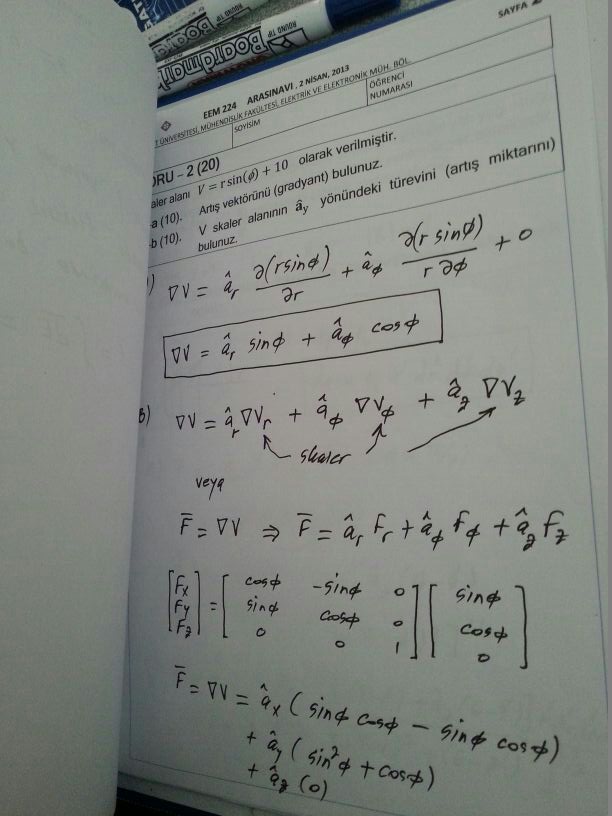 ROUND TIP
Board mark
SAYFA
EEM 224 ARASINAVI, 2 NİSAN, 2013
ÜNİVERSİTESİ, MÜHENDİSLİK FAKÜLTESİ, ELEKTRİK VE ELEKTRONİK MÜH. BÖL.
SOYİSİM
ÖĞRENCİ
NUMARASI
ORU – 2 (20)
aler alanı V = r sin(ϕ) + 10 olarak verilmiştir.
-a (10). Artış vektörünü (gradyant) bulunuz.
-b (10). V skaler alanının â_y yönündeki türevini (artış miktarını)
bulunuz.
) ∇V = â_r ∂(r sinϕ)/∂r + â_ϕ ∂(r sinϕ)/r ∂ϕ + 0
∇V = â_r sinϕ + â_ϕ cosϕ
B) ∇V = â_r ∇V_r + â_ϕ ∇V_ϕ + â_z ∇V_z
skaler
veya
F̄ = ∇V ⇒ F̄ = â_r F_r + â_ϕ F_ϕ + â_z F_z
[F_x] = [cosϕ -sinϕ 0] [sinϕ]
[F_y] [sinϕ cosϕ 0] [cosϕ]
[F_z] [0 0 1] [0]
F̄ = ∇V = â_x (sinϕ cosϕ - sinϕ cosϕ)
+ â_y (sin²ϕ + cosϕ)
+ â_z (0)